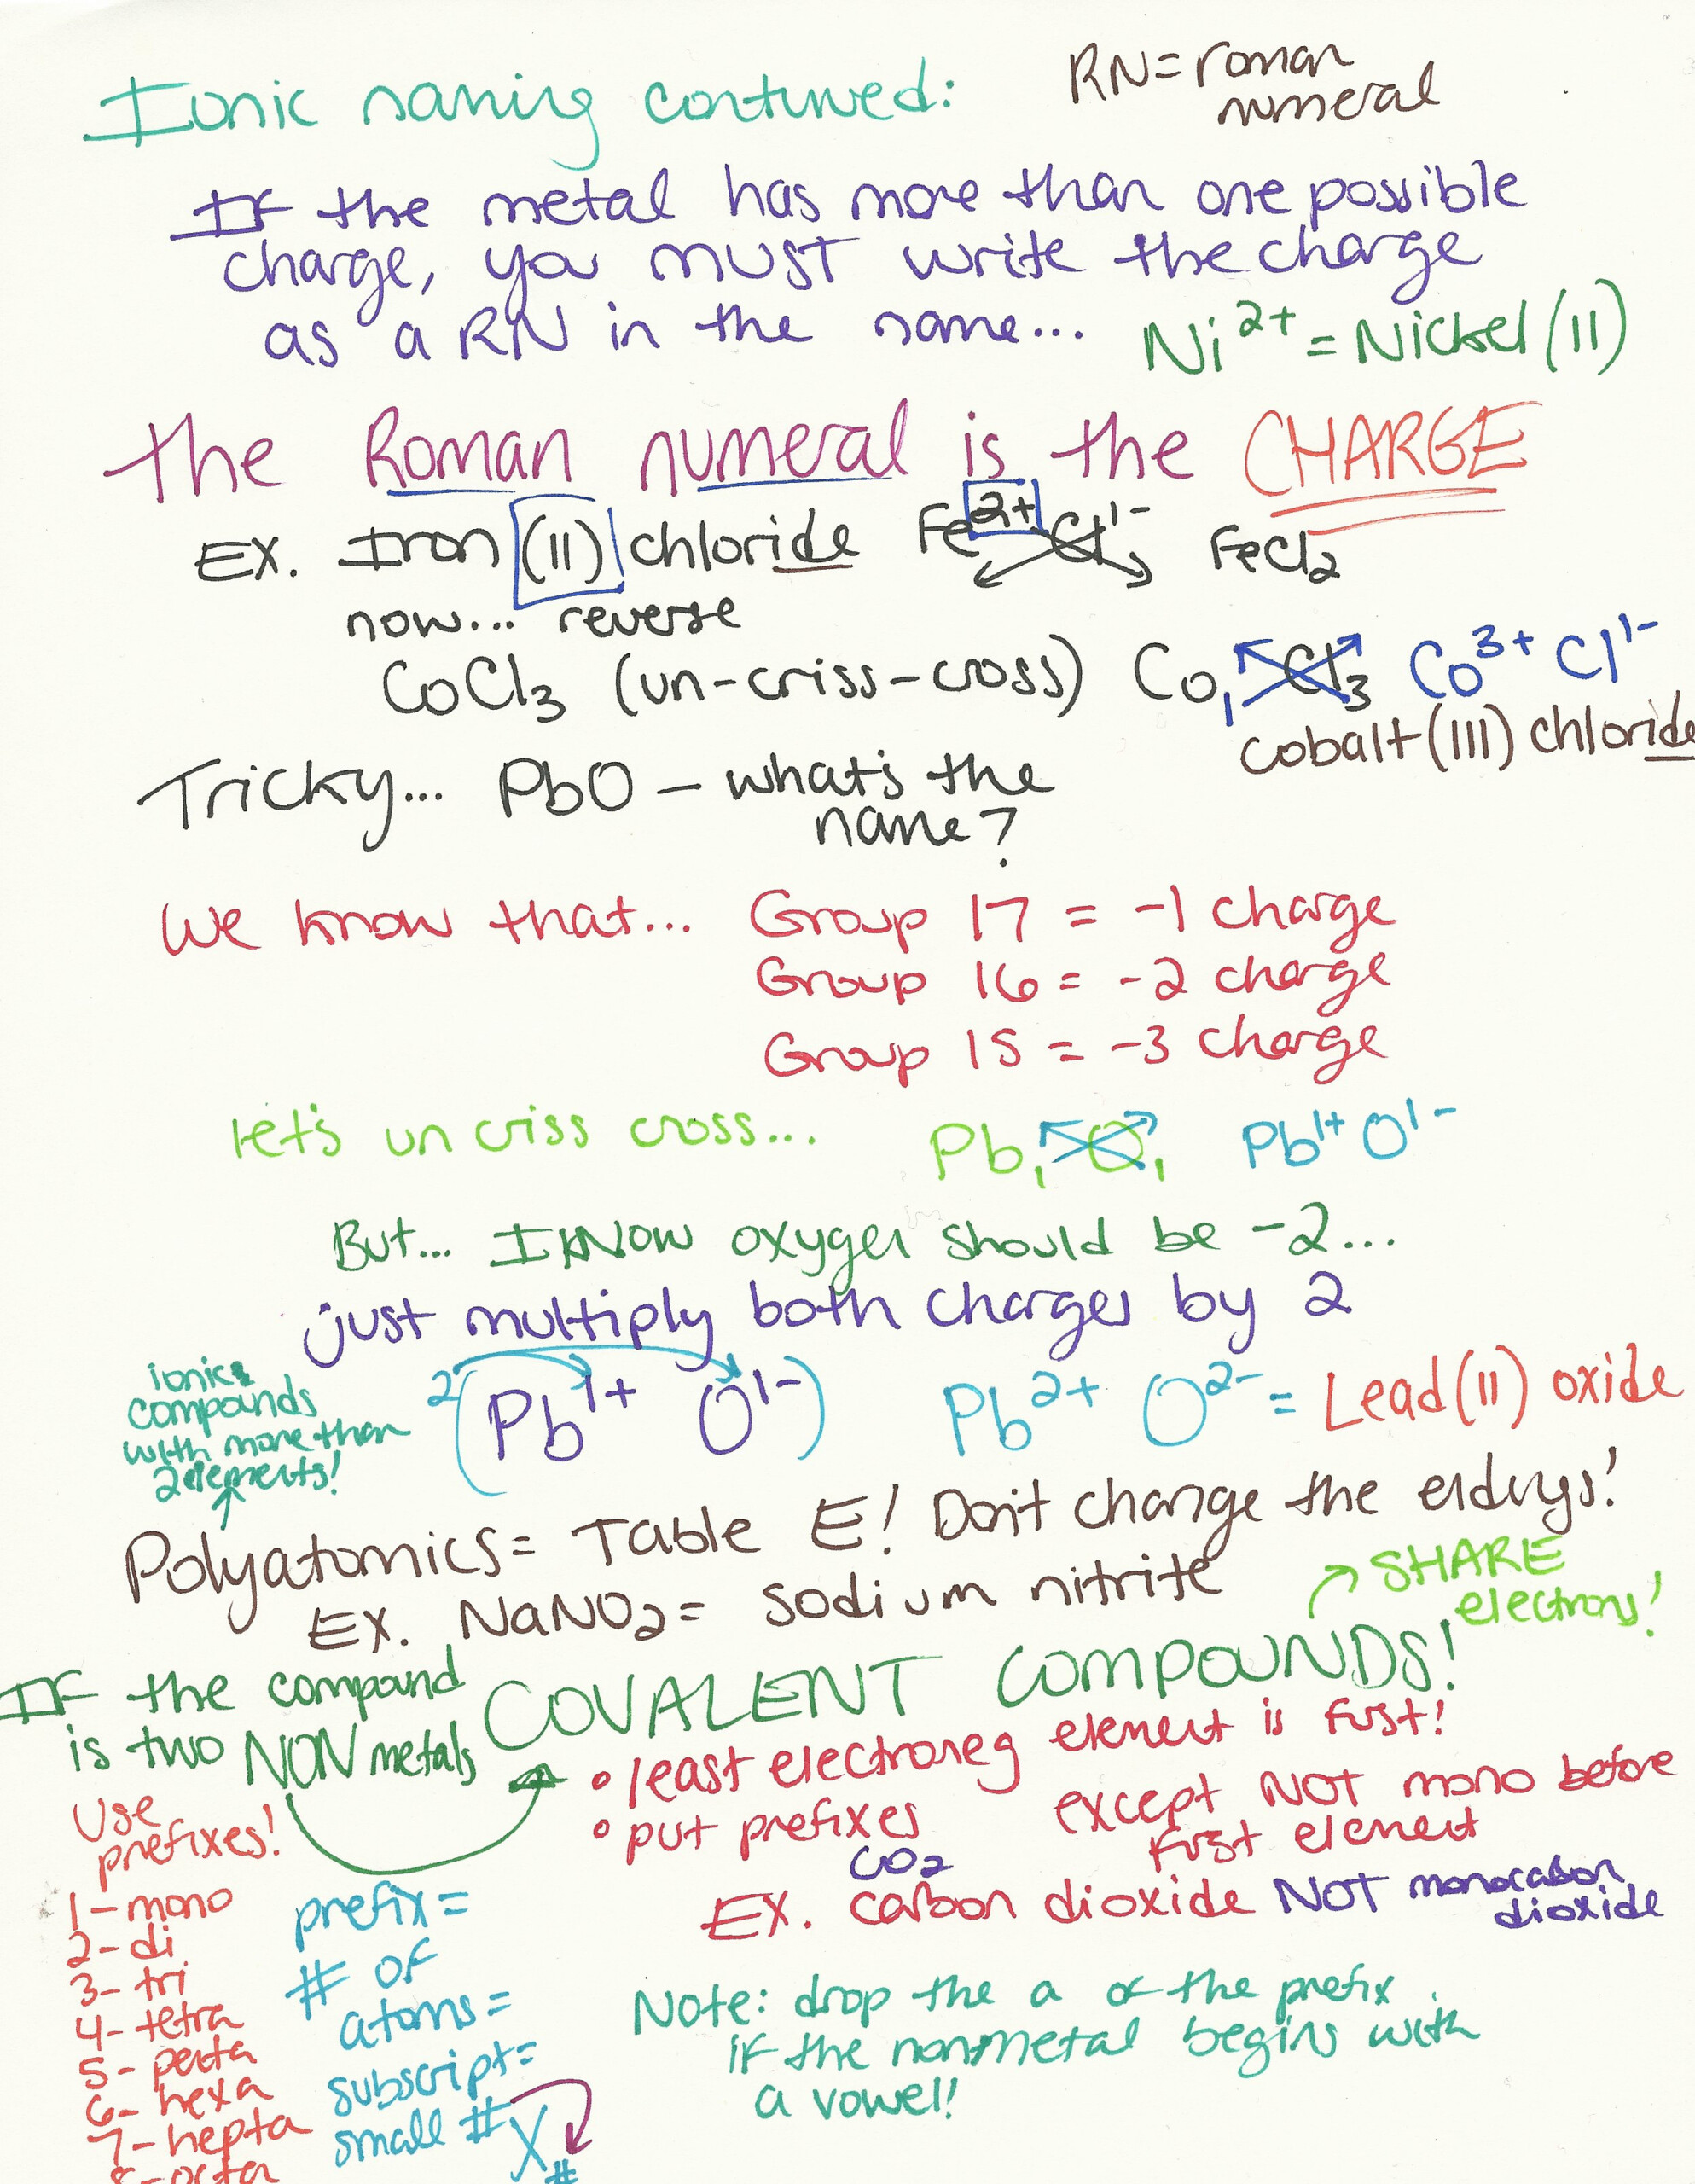 Ionic naming continued:
RN = roman
numeral
If the metal has more than one possible
charge, you MUST write the charge
as a RN in the name...
Ni²⁺ = Nickel (II)
The Roman numeral is the CHARGE
EX. Iron (II) chloride Fe²⁺ Cl¹⁻ FeCl₂
now... reverse
CoCl₃ (un-criss-cross) Co₁ Cl₃ Co³⁺ Cl¹⁻
cobalt (III) chloride
Tricky... PbO – what's the
name?
We know that... Group 17 = -1 charge
Group 16 = -2 charge
Group 15 = -3 charge
let's un criss cross... Pb₁ O₁ Pb¹⁺ O¹⁻
But... I KNOW oxygen should be -2...
just multiply both charges by 2
2(Pb¹⁺ O¹⁻) Pb²⁺ O²⁻ = Lead (II) oxide
ionic
compounds
with more than
2 elements!
Polyatomics = Table E! Don't change the endings!
EX. NaNO₂ = sodium nitrite
SHARE
electrons!
If the compound
is two NON metals
COVALENT COMPOUNDS!
• least electroneg element is first!
• put prefixes except NOT mono before
first element
CO₂
EX. carbon dioxide NOT monocarbon
dioxide
Use
prefixes!
1 - mono
2 - di
3 - tri
4 - tetra
5 - penta
6 - hexa
7 - hepta
8 - octa
prefix =
# of
atoms =
subscript =
small # X
#
Note: drop the a of the prefix
if the nonmetal begins with
a vowel!